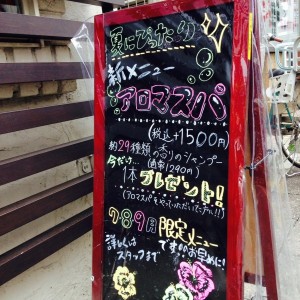 夏にぴったり!!
新メニュー
アロマスパ
(税込+1500円)
約29種類の香りのシャンプー
今だけ… (通常1290円)
1本 プレゼント!
(アロマスパをやっていただいた方に!!)
7 8 9月 限定メニュー
です!!お早めに!
詳しくは
スタッフまで